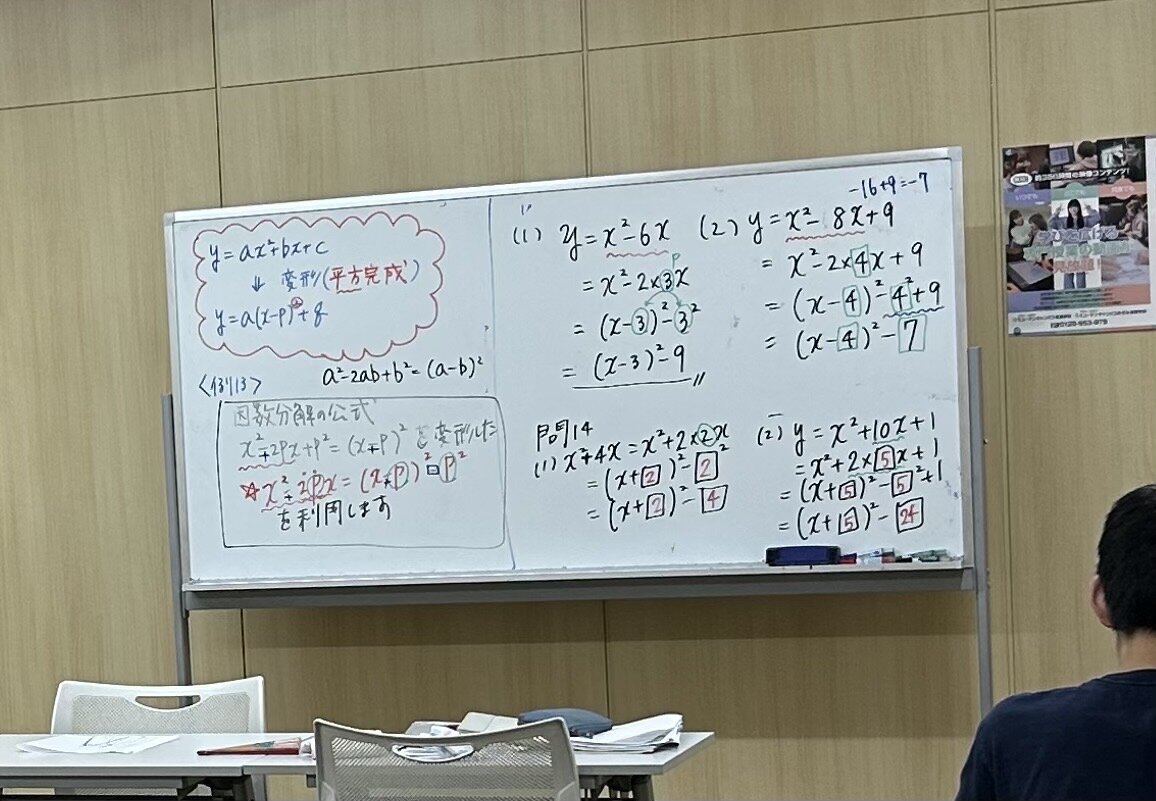 y=ax²+bx+c
↓ 変形(平方完成)
y=a(x-p)²+q
a²-2ab+b²=(a-b)²
<例13>
因数分解の公式
x²∓2px+p²=(x∓p)² を変形した
☆x²±2px=(x±p)²-p²
を利用します
(1) y=x²-6x
=x²-2×3x
p
=(x-3)²-3²
=(x-3)²-9
-16+9=-7
(2) y=x²-8x+9
=x²-2×4x+9
=(x-4)²-4²+9
=(x-4)²-7
問14
(1) x²+4x=x²+2×2x
=(x+2)²-2²
=(x+2)²-4
(2) y=x²+10x+1
=x²+2×5x+1
=(x+5)²-5²+1
=(x+5)²-24